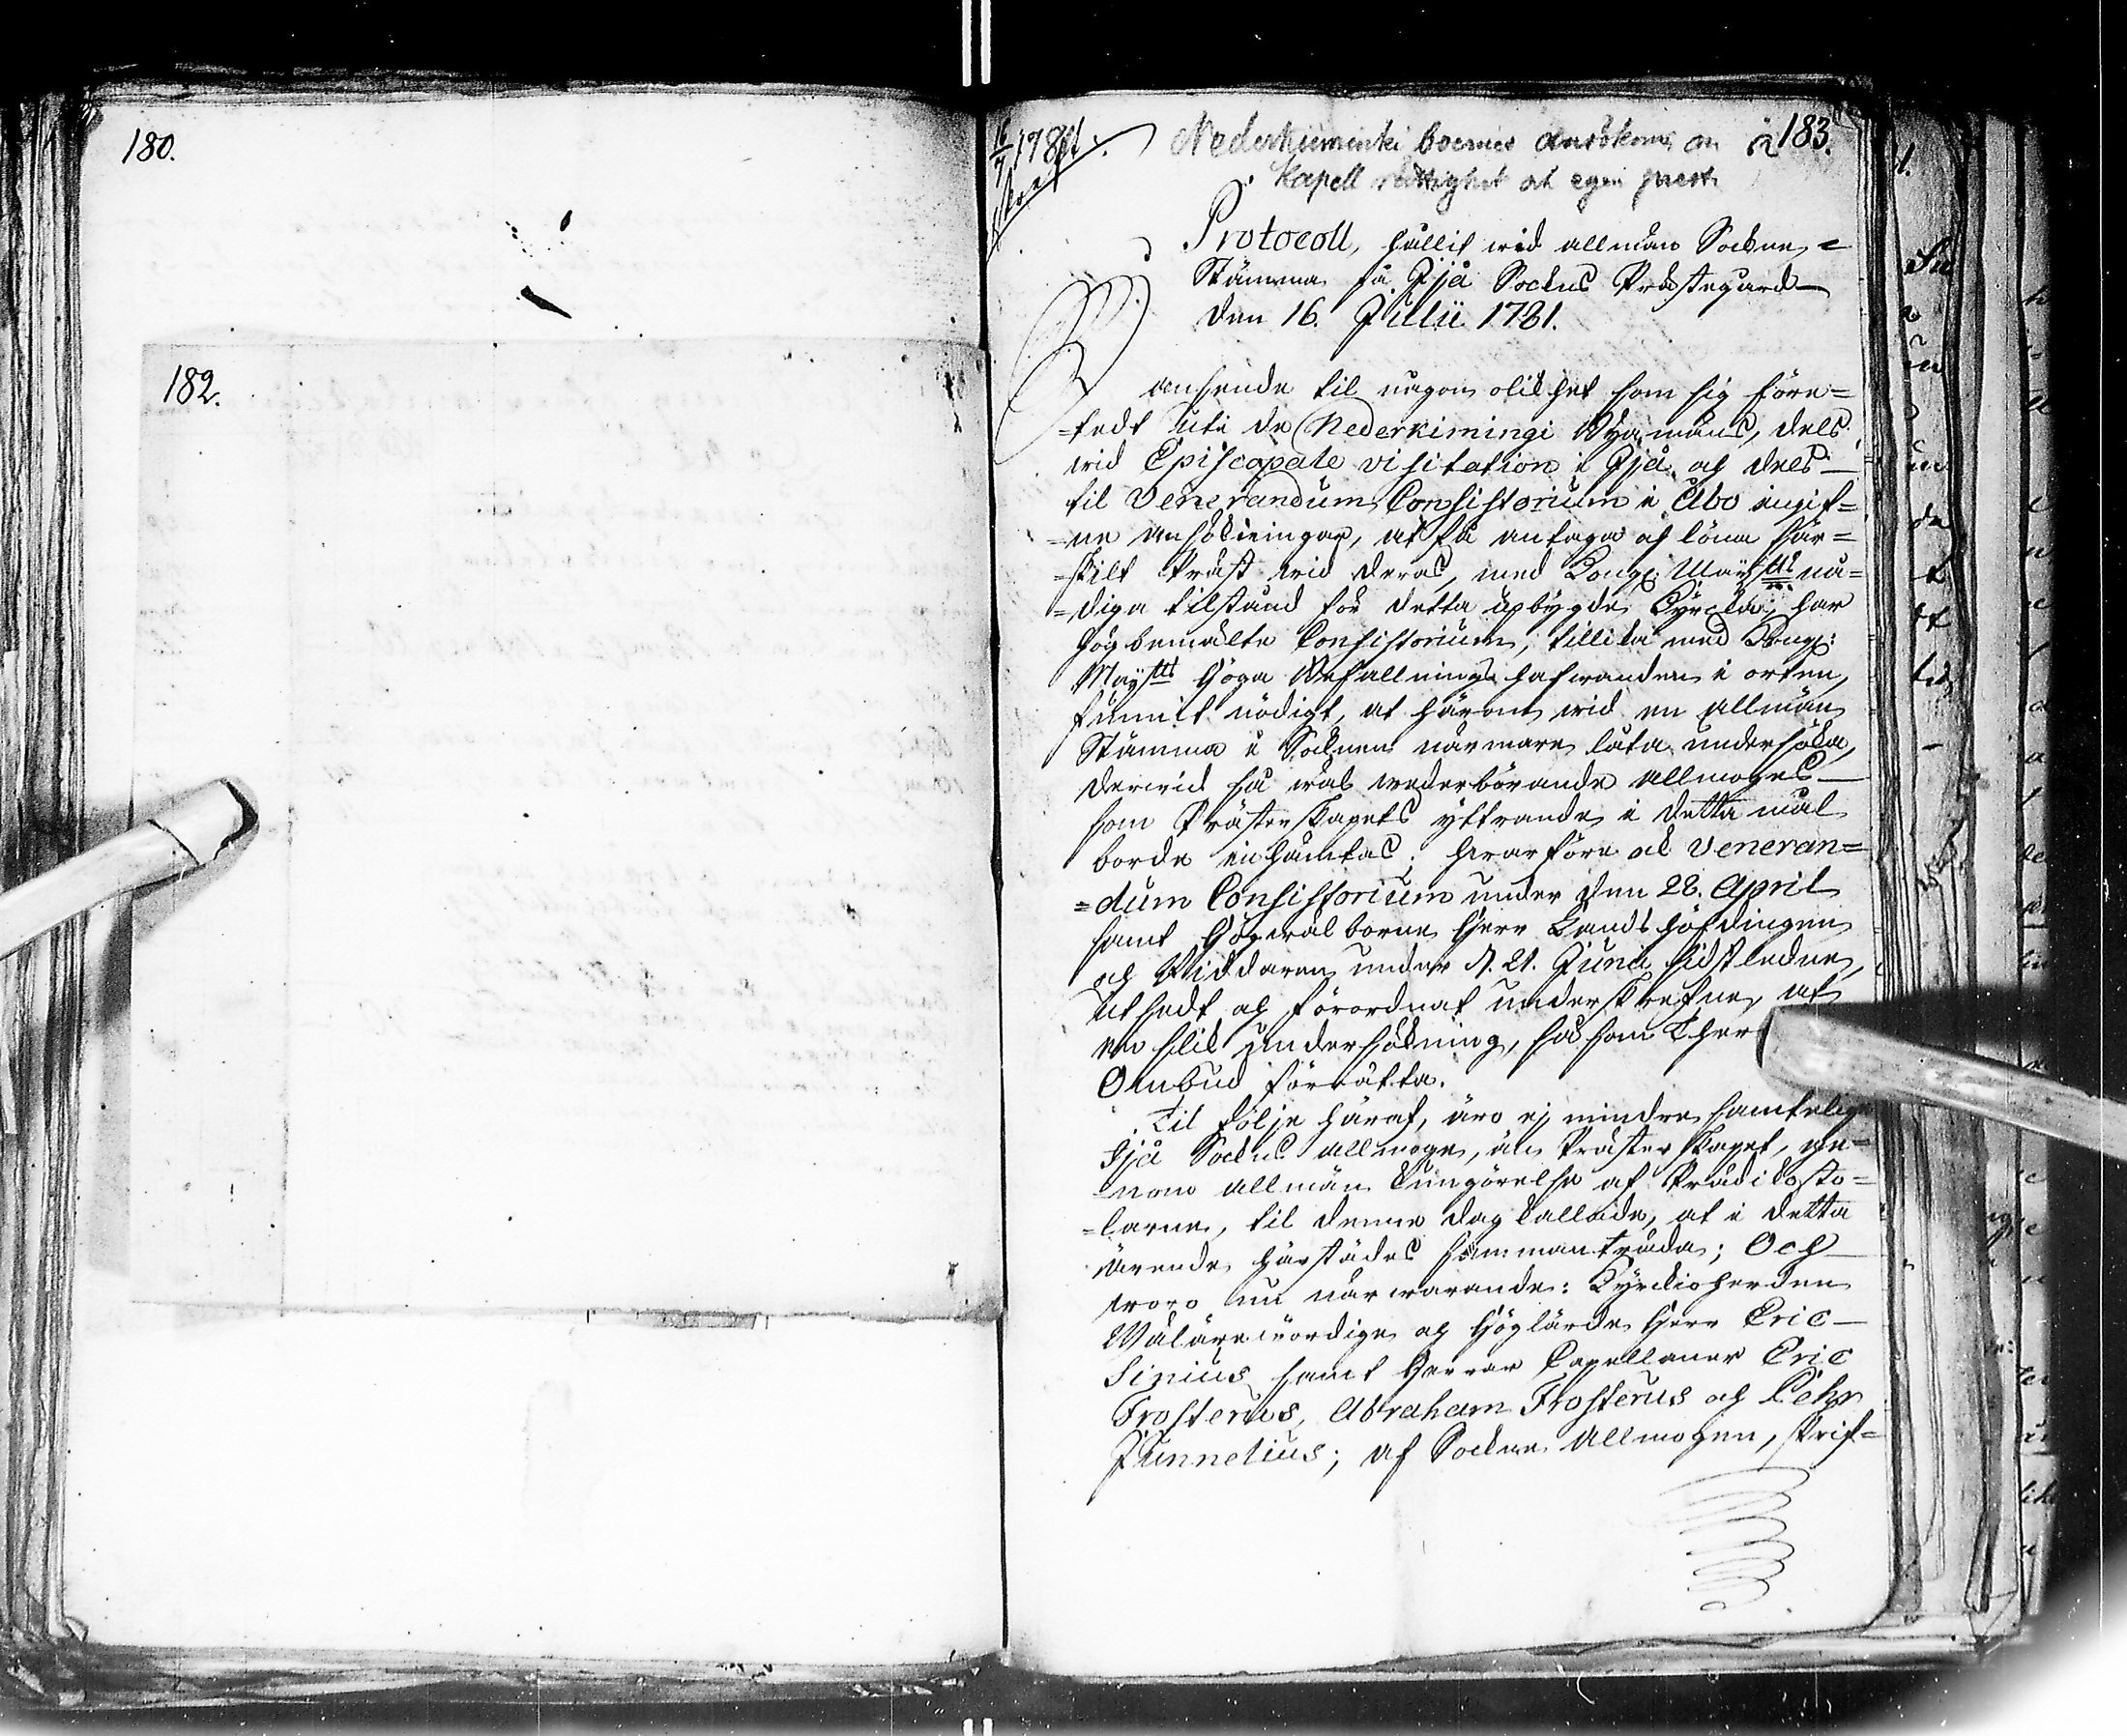 180.
182.
16/7 1781.
183.
Nederkiiminki boernes ansökning om
Kapell rättighet at egen prest
Protocoll, hållit wid allmän Sockne-
Stämma på Ijå Sockns Prästegård
den 16. Julii 1781.
I anseende til någon olikhet som sig före-
-tedt uti de Nederkimingi Byamäns, dels
wid Episcopale visitation i Ijå och dels
til Venerandum Consistorium i Åbo ingif-
-ne ansökningar, at få antaga och löna sär-
-skilt Präst wid deras, med Kongl. Maij:tts nå-
-diga tilstånd för detta upbygde Kyrcka; har
högbemälte Consistorium, tillika med Kongl:
Maij:tts Höga Befallningshafwanden i orten,
funnit nödigt, at härom wid en allmän
Stämma i Soknen närmare låta undersöka,
derwid så wäl wederbörande Allmoges
som Prästerskapets yttrande i detta mål
borde inhämtas; hwarföre ock Veneran-
=dum Consistorium under den 28. April
samt Högwälborne Herr Landshöfdingen
och Riddaren under d. 21. Junii sidstledne,
utsedt och förordnat underskrefne, at
en slik undersökning, såsom Ther
Ombud förrätta.
Til följe häraf, äro ej mindre samtelige
Ijå Sockns allmoge, än Prästerskapet, ge-
-nom allmän kungörelse af Prädikosto-
-larne, til denne dag kallade, at i detta
ärende härstädes sammanträda; Och
woro nu närwarande: Kyrckioherden
Wälärewördige och Höglärde Herr Eric
Sinius samt Herrar Capellaner Eric
Frosterus, Abraham Frosterus och Pehr
Junnelius; af Sockne Allmogen, skrif-